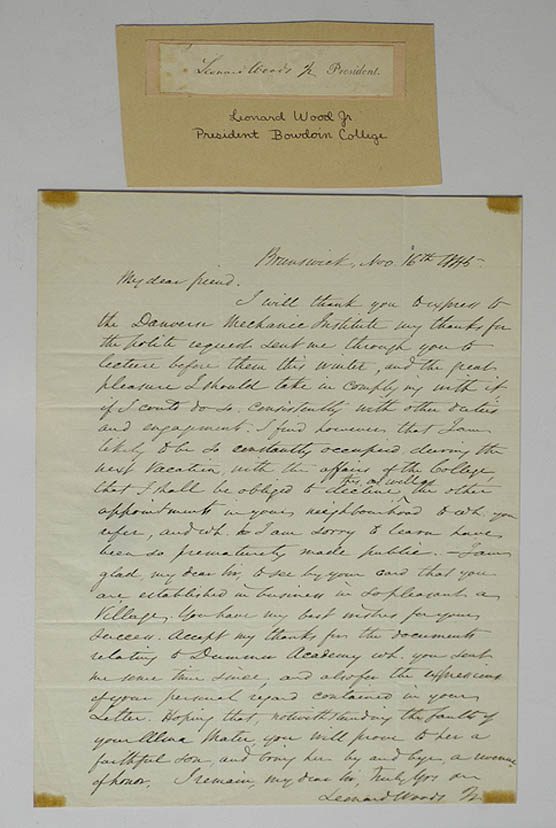 Leonard Woods Jr President.
Leonard Wood Jr
President Bowdoin College
Brunswick, Nov. 16th 1845.
My dear friend.
I will thank you to express to
the Danvers Mechanic Institute my thanks for
the polite request sent me through you to
lecture before them this winter, and the great
pleasure I should take in complying with it
if I could do so, consistently with other duties
and engagements. I find however that I am
likely to be so constantly occupied during the
next vacation, with the affairs of the College,
that I shall be obliged to decline this, as well as the other
appointments in your neighbourhood to wh. you
refer, and wh. I am sorry to learn have
been so prematurely made public. — I am
glad, my dear Sir, to see by your card that you
are established in business in so pleasant a
Village. You have my best wishes for your
success. Accept my thanks for the documents
relating to Dummer Academy wh. you sent
me some time since, and also for the expressions
of your personal regard contained in your
Letter. Hoping that, notwithstanding the faults of
your Alma Mater, you will prove to her a
faithful son, and bring her by and bye, a revenue
of honor, I remain, my dear Sir, truly Yrs
Leonard Woods Jr.